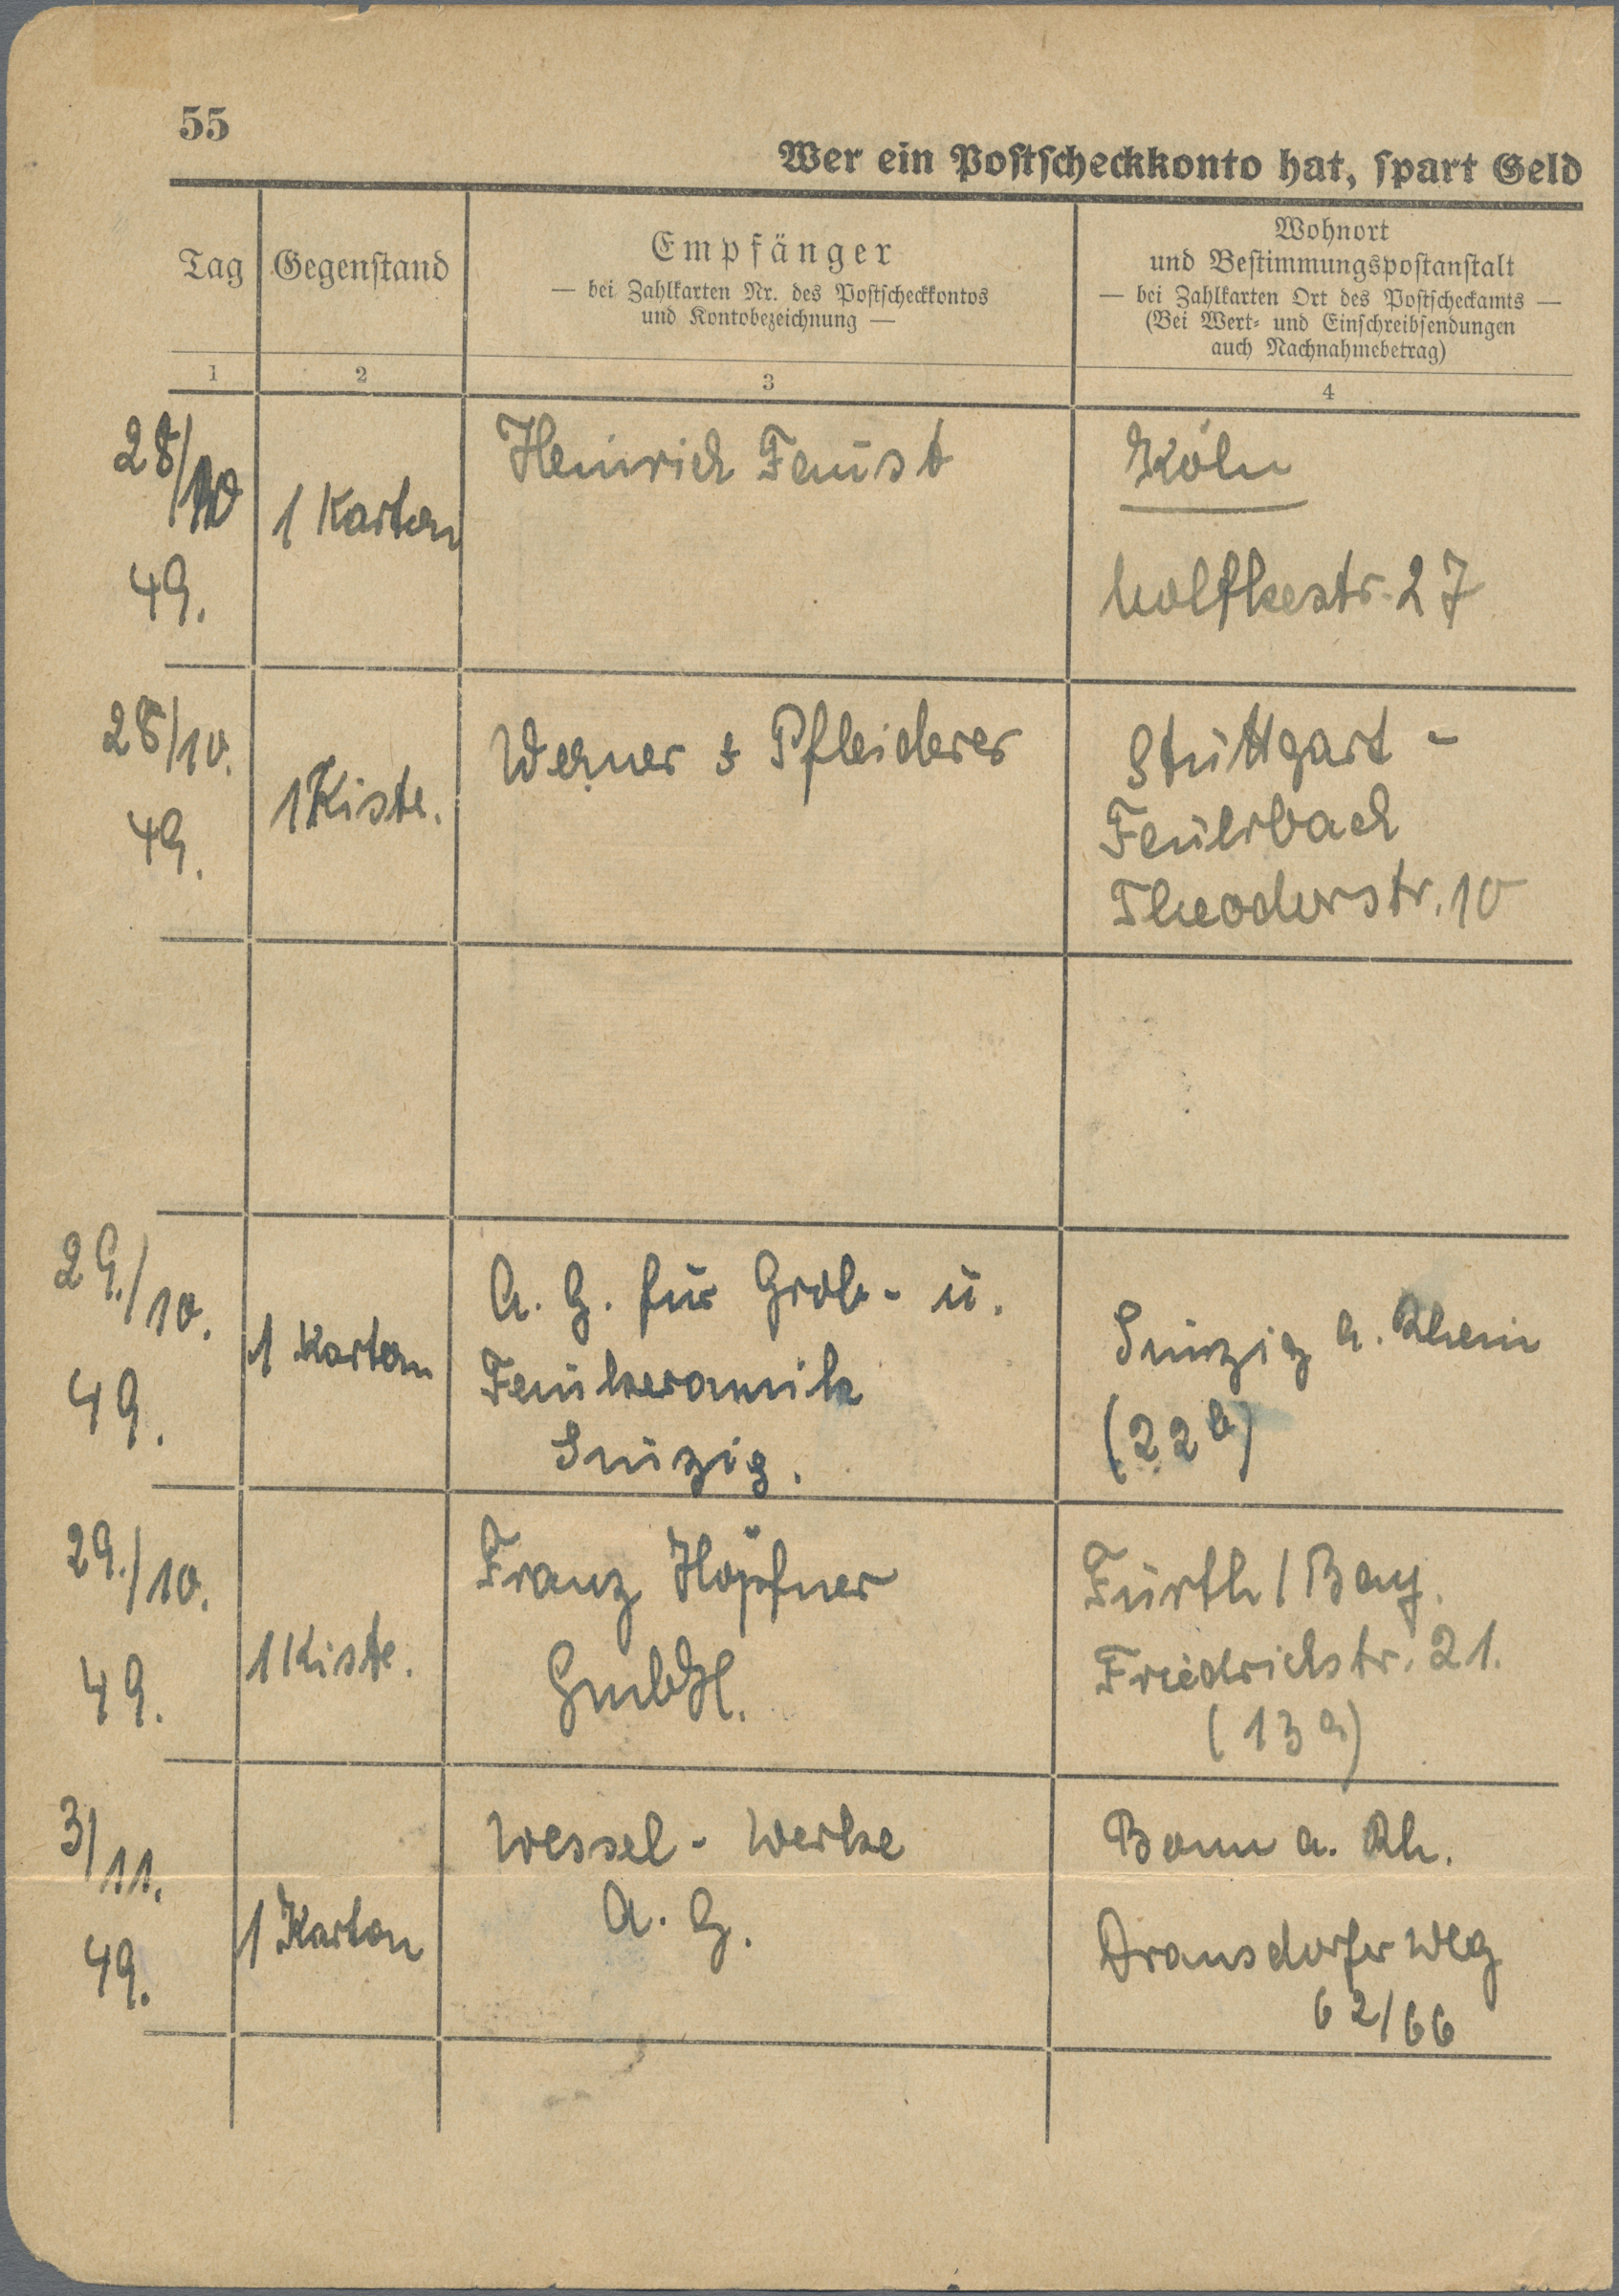 55
Wer ein Postscheckkonto hat, spart Geld
Tag
Gegenstand
Empfänger
— bei Zahlkarten Nr. des Postscheckkontos
und Kontobezeichnung —
Wohnort
und Bestimmungspostanstalt
— bei Zahlkarten Ort des Postscheckamts —
(Bei Wert- und Einschreibsendungen
auch Nachnahmebetrag)
1
2
3
4
28/10
49.
1 Karton
Heinrich Feust
Köln
Moltkestr. 27
28/10.
49.
1 Kiste.
Werner & Pfleiderer
Stuttgart -
Feuerbach
Theoderstr. 10
29./10.
49.
1 Karton
A. G. für Grob- u.
Feinkeramik
Sinzig.
Sinzig a. Rhein
(22b)
29./10.
49.
1 Kiste.
Franz Höpfner
GmbH.
Fürth / Bay.
Friedrichstr. 21.
(13a)
3/11.
49.
1 Karton
Wessel - Werke
A. G.
Bonn a. Rh.
Dransdorfer Weg
62/66